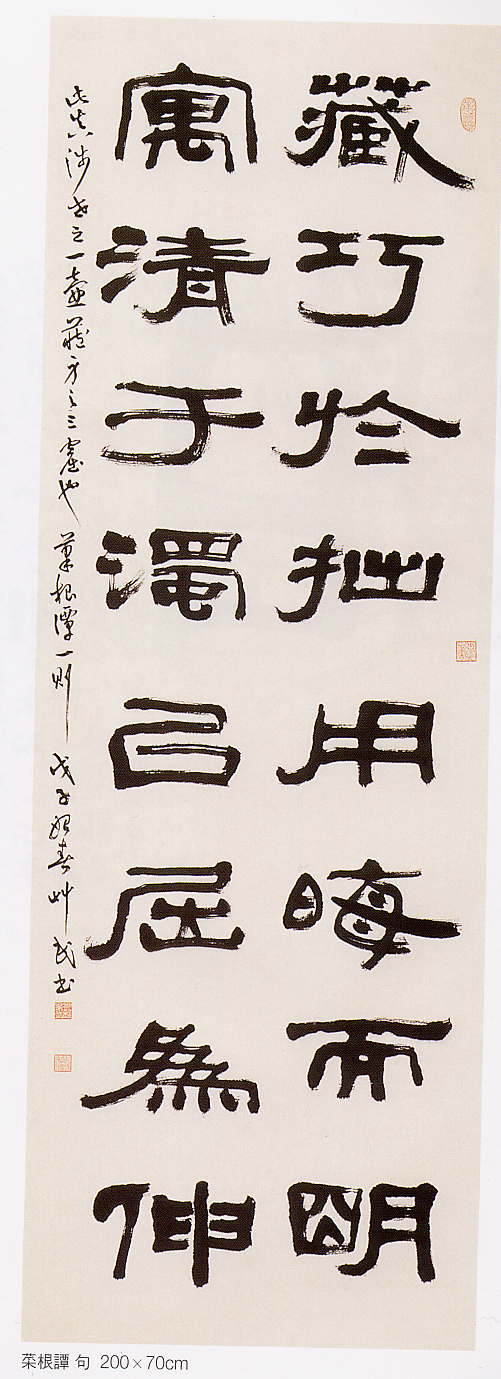 藏巧於拙用晦而明
寓清于濁以屈為伸
此真涉世之一壺藏身之三窟也 菜根譚一則 戊子初春艸民書
菜根譚 句 200×70cm